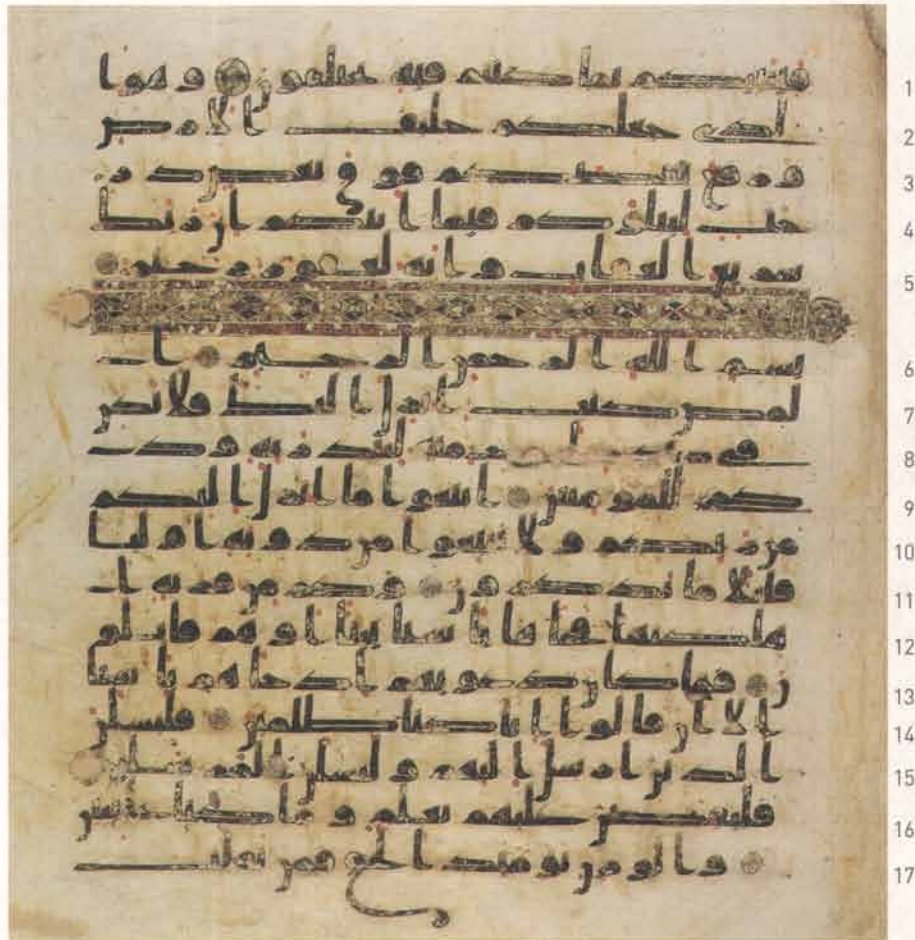 فينبئكم بما كنتم فيه تختلفون وهو ا 1
لذى جعلكم خليف الارض 2
ورفع بعضكم فوق بعض در 3
جت ليبلوكم فى ما اتيكم ان ربك 4
سريع العقاب وانه لغفور رحيم 5
بسم الله الرحمن الرحيم ا 6
لمص كتب انزل اليك فلا يكن 7
فى صدرك حرج منه لتنذر به وذ 8
كرى للمومنين اتبعوا ما انزل اليكم 9
من ربكم ولا تتبعوا من دونه اوليا 10
قليلا ما تذكرون وكم من قرية ا 11
هلكنها فجاها باسنا بيتا او هم قايلو 12
ن فما كان دعويهم اذ جاهم باسنا 13
الا ان قالوا انا كنا ظلمين فلنسلن 14
الذين ارسل اليهم ولنسلن المرسلين 15
فلنقصن عليهم بعلم وما كنا غايبين 16
والوزن يوميذ الحق فمن ثقلت 17